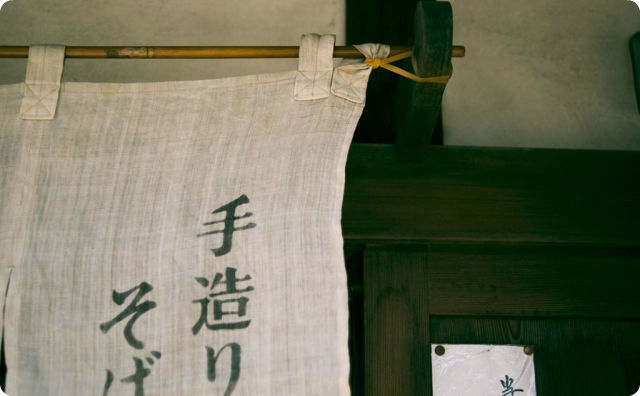 手造り
そば